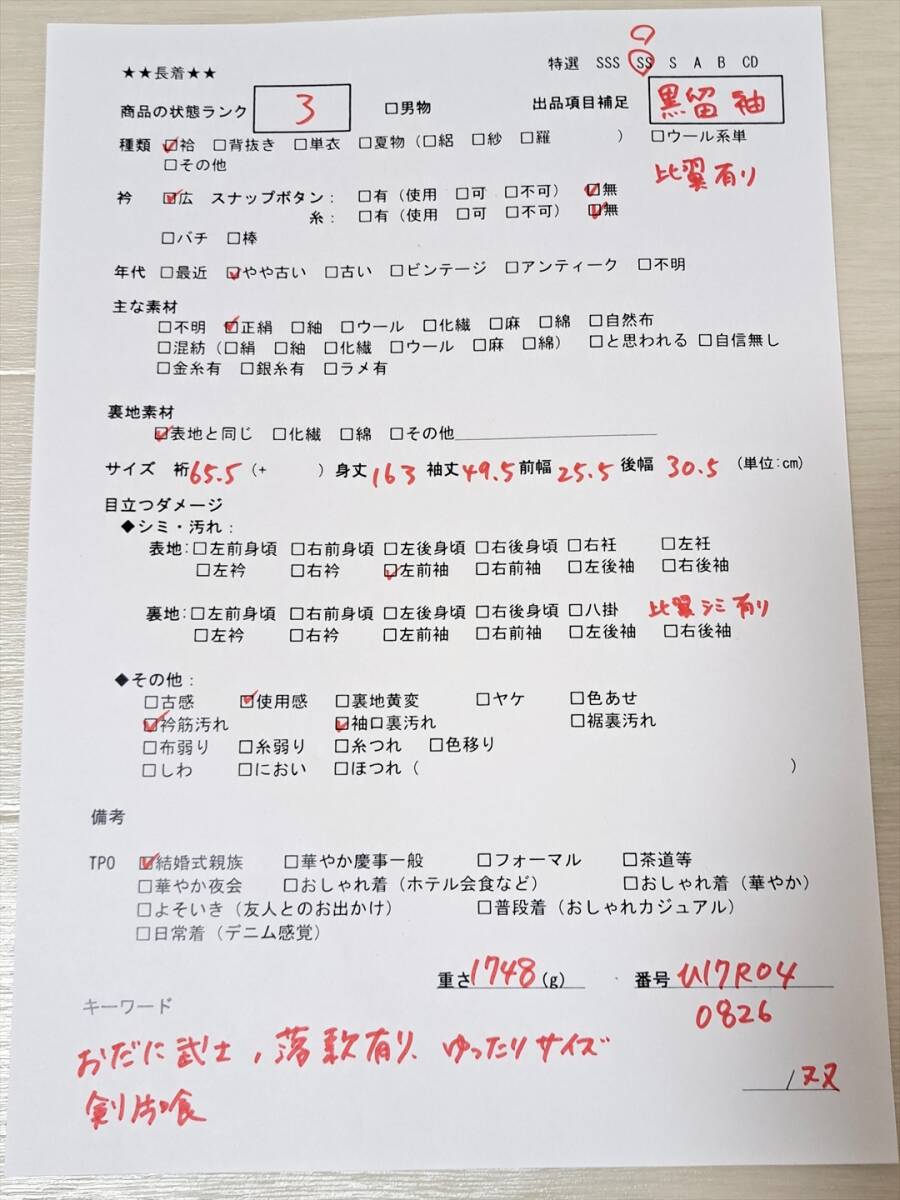 ★★長着★★
特選 SSS SS S A B CD
商品の状態ランク 3 □男物 出品項目補足 黒留袖
種類 ☑袷 □背抜き □単衣 □夏物（□絽 □紗 □羅 ） □ウール系単
□その他
比翼有り
衿 ☑広 スナップボタン： □有（使用 □可 □不可） ☑無
糸： □有（使用 □可 □不可） ☑無
□バチ □棒
年代 □最近 ☑やや古い □古い □ビンテージ □アンティーク □不明
主な素材
□不明 ☑正絹 □紬 □ウール □化繊 □麻 □綿 □自然布
□混紡（□絹 □紬 □化繊 □ウール □麻 □綿） □と思われる □自信無し
□金糸有 □銀糸有 □ラメ有
裏地素材
☑表地と同じ □化繊 □綿 □その他
サイズ 裄65.5（+ ）身丈163 袖丈49.5 前幅25.5 後幅30.5 （単位：cm）
目立つダメージ
◆シミ・汚れ：
表地：□左前身頃 □右前身頃 □左後身頃 □右後身頃 □右衽 □左衽
□左衿 □右衿 ☑左前袖 □右前袖 □左後袖 □右後袖
裏地：□左前身頃 □右前身頃 □左後身頃 □右後身頃 □八掛 比翼シミ有り
□左衿 □右衿 □左前袖 □右前袖 □左後袖 □右後袖
◆その他：
□古感 ☑使用感 □裏地黄変 □ヤケ □色あせ
☑衿筋汚れ ☑袖口裏汚れ □裾裏汚れ
□布弱り □糸弱り □糸つれ □色移り
□しわ □におい □ほつれ（ ）
備考
TPO ☑結婚式親族 □華やか慶事一般 □フォーマル □茶道等
□華やか夜会 □おしゃれ着（ホテル会食など） □おしゃれ着（華やか）
□よそいき（友人とのお出かけ） □普段着（おしゃれカジュアル）
□日常着（デニム感覚）
重さ1748(g) 番号 U17R04
0826
キーワード
おだに武士，落款有り、ゆったりサイズ
剣片喰